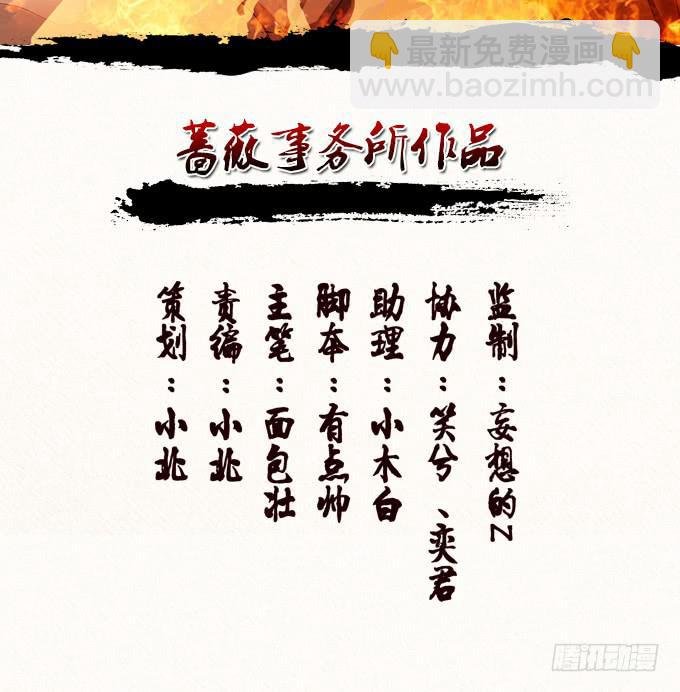 最新免费漫画
www.baozimh.com
蔷薇事务所作品
监制：妄想的Z
协力：笑兮、奕君
助理：小木白
脚本：有点帅
主笔：面包壮
责编：小北
策划：小北
腾讯动漫